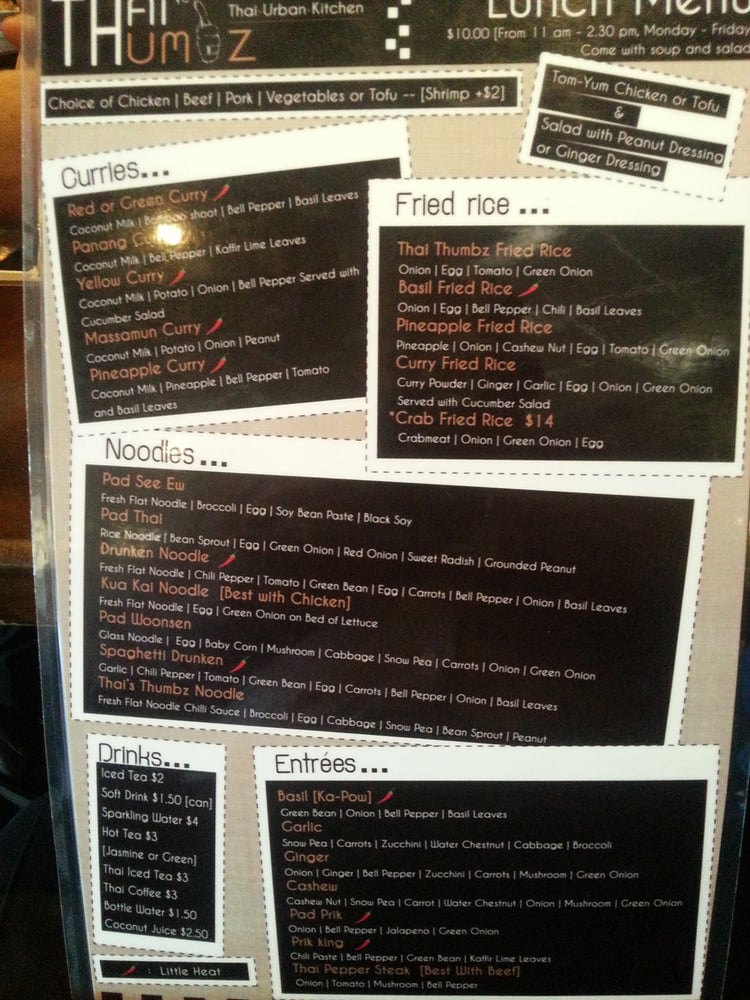 THAI
THUMBZ
Thai Urban Kitchen
Lunch Menu
$10.00 [From 11 am - 2.30 pm, Monday - Friday
Come with soup and salad
Choice of Chicken | Beef | Pork | Vegetables or Tofu -- [Shrimp +$2]
Tom-Yum Chicken or Tofu
&
Salad with Peanut Dressing
or Ginger Dressing
Curries...
Red or Green Curry
Coconut Milk | Bamboo shoot | Bell Pepper | Basil Leaves
Panang Curry
Coconut Milk | Bell Pepper | Kaffir Lime Leaves
Yellow Curry
Coconut Milk | Potato | Onion | Bell Pepper Served with
Cucumber Salad
Massamun Curry
Coconut Milk | Potato | Onion | Peanut
Pineapple Curry
Coconut Milk | Pineapple | Bell Pepper | Tomato
and Basil Leaves
Fried rice ...
Thai Thumbz Fried Rice
Onion | Egg | Tomato | Green Onion
Basil Fried Rice
Onion | Egg | Bell Pepper | Chili | Basil Leaves
Pineapple Fried Rice
Pineapple | Onion | Cashew Nut | Egg | Tomato | Green Onion
Curry Fried Rice
Curry Powder | Ginger | Garlic | Egg | Onion | Green Onion
Served with Cucumber Salad
*Crab Fried Rice $14
Crabmeat | Onion | Green Onion | Egg
Noodles ...
Pad See Ew
Fresh Flat Noodle | Broccoli | Egg | Soy Bean Paste | Black Soy
Pad Thai
Rice Noodle | Bean Sprout | Egg | Green Onion | Red Onion | Sweet Radish | Grounded Peanut
Drunken Noodle
Fresh Flat Noodle | Chili Pepper | Tomato | Green Bean | Egg | Carrots | Bell Pepper | Onion | Basil Leaves
Kua Kai Noodle [Best with Chicken]
Fresh Flat Noodle | Egg | Green Onion on Bed of Lettuce
Pad Woonsen
Glass Noodle | Egg | Baby Corn | Mushroom | Cabbage | Snow Pea | Carrots | Onion | Green Onion
Spaghetti Drunken
Garlic | Chili Pepper | Tomato | Green Bean | Egg | Carrots | Bell Pepper | Onion | Basil Leaves
Thai's Thumbz Noodle
Fresh Flat Noodle Chilli Sauce | Broccoli | Egg | Cabbage | Snow Pea | Bean Sprout | Peanut
Drinks...
Iced Tea $2
Soft Drink $1.50 [can]
Sparkling Water $4
Hot Tea $3
[Jasmine or Green]
Thai Iced Tea $3
Thai Coffee $3
Bottle Water $1.50
Coconut Juice $2.50
: Little Heat
Entrées ...
Basil [Ka-Pow]
Green Bean | Onion | Bell Pepper | Basil Leaves
Garlic
Snow Pea | Carrots | Zucchini | Water Chestnut | Cabbage | Broccoli
Ginger
Onion | Ginger | Bell Pepper | Zucchini | Carrots | Mushroom | Green Onion
Cashew
Cashew Nut | Snow Pea | Carrot | Water Chestnut | Onion | Mushroom | Green Onion
Pad Prik
Onion | Bell Pepper | Jalapeno | Green Onion
Prik king
Chili Paste | Bell Pepper | Green Bean | Kaffir Lime Leaves
Thai Pepper Steak [Best With Beef]
Onion | Tomato | Mushroom | Bell Pepper